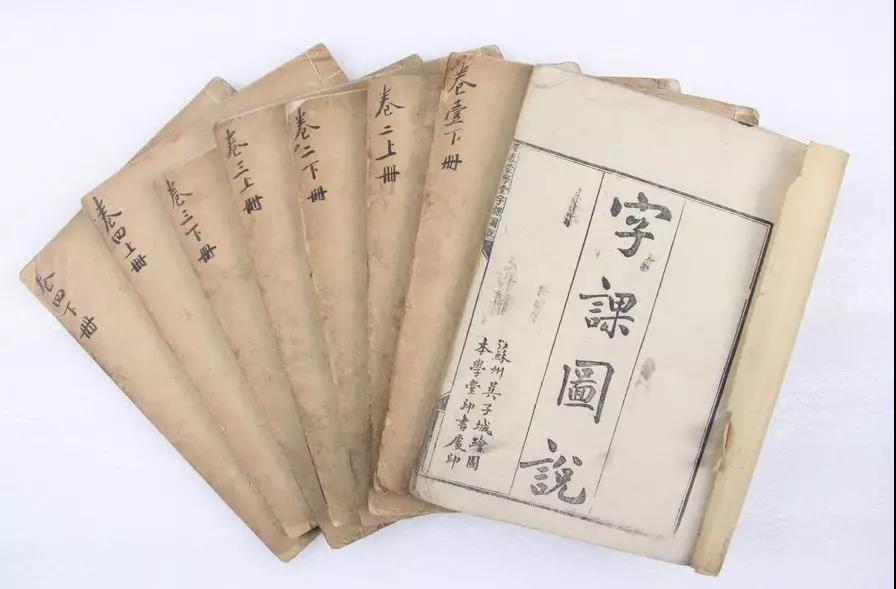 字課圖說
蘇州吳子城繪圖
本學堂印書處印
澄衷蒙學堂字課圖說
卷壹下冊
卷二上冊
卷二下冊
卷三上冊
卷三下冊
卷四上冊
卷四下冊